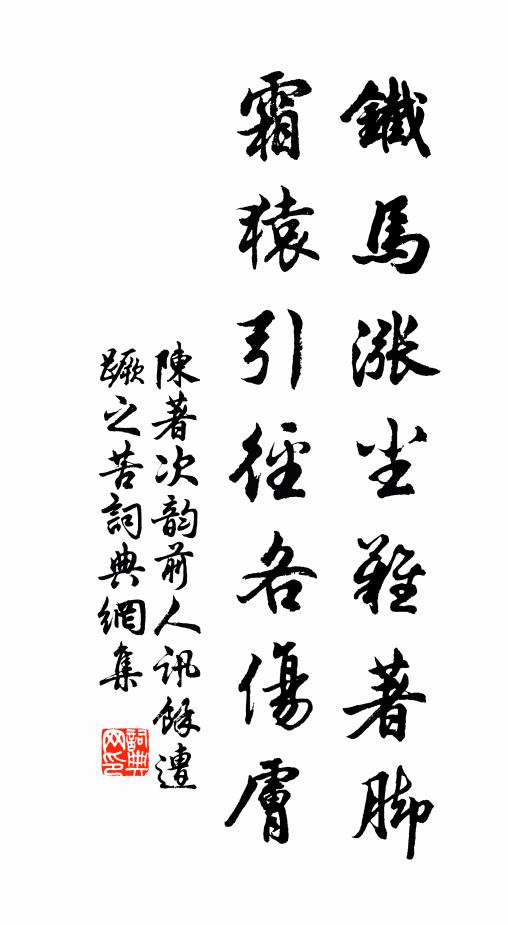 鐵馬漲尘難著脚
霜猿引徑各傷膚
陳著次韵前人訊餘遭
蹶之苦詞典網集
詞典
网印